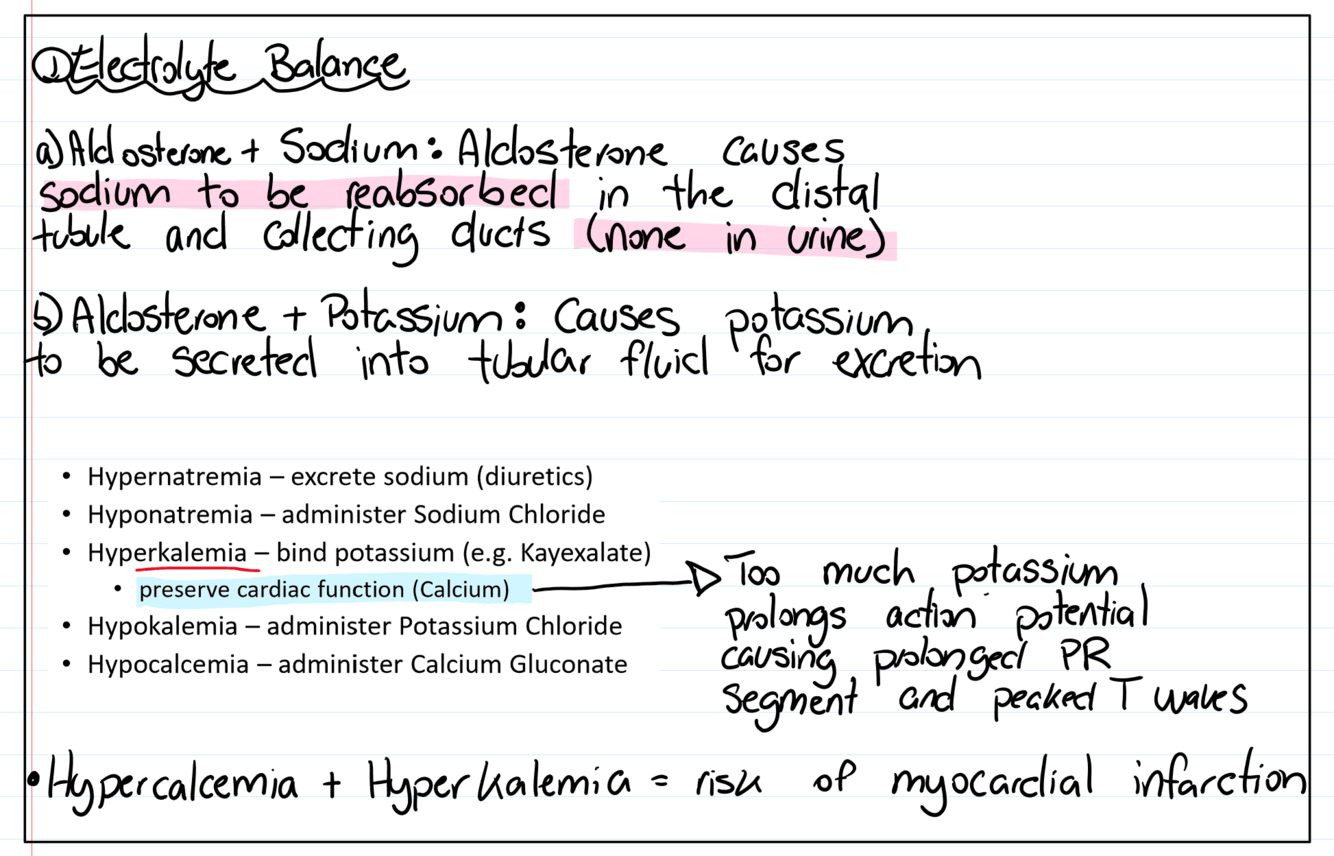 ① Electrolyte Balance
a) Aldosterone + Sodium: Aldosterone causes
sodium to be reabsorbed in the distal
tubule and collecting ducts (none in urine)
b) Aldosterone + Potassium: Causes potassium
to be secreted into tubular fluid for excretion
• Hypernatremia – excrete sodium (diuretics)
• Hyponatremia – administer Sodium Chloride
• Hyperkalemia – bind potassium (e.g. Kayexalate)
• preserve cardiac function (Calcium)
Too much potassium
prolongs action potential
causing prolonged PR
segment and peaked T waves
• Hypokalemia – administer Potassium Chloride
• Hypocalcemia – administer Calcium Gluconate
• Hypercalcemia + Hyperkalemia = risk of myocardial infarction